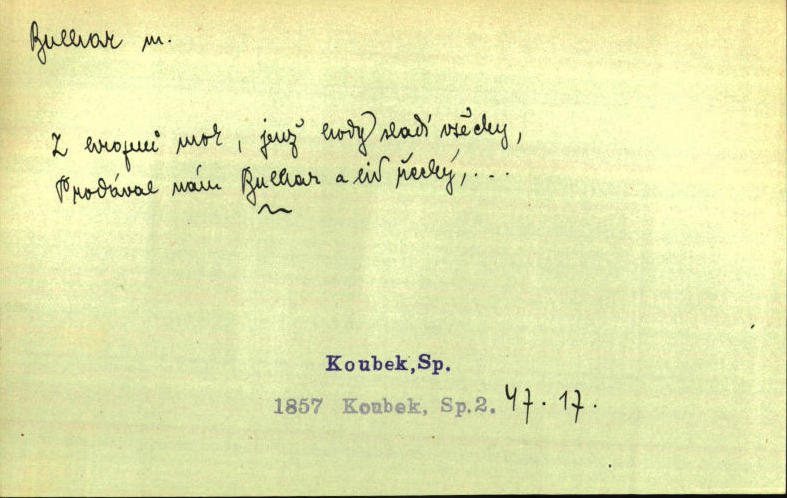 Bulhar m.
Z evropui moc, jenž hody sladí všecky,
Prodával nám Bulhar a lid řecký,...
Koubek,Sp.
1857 Koubek, Sp.2. 47. 17.